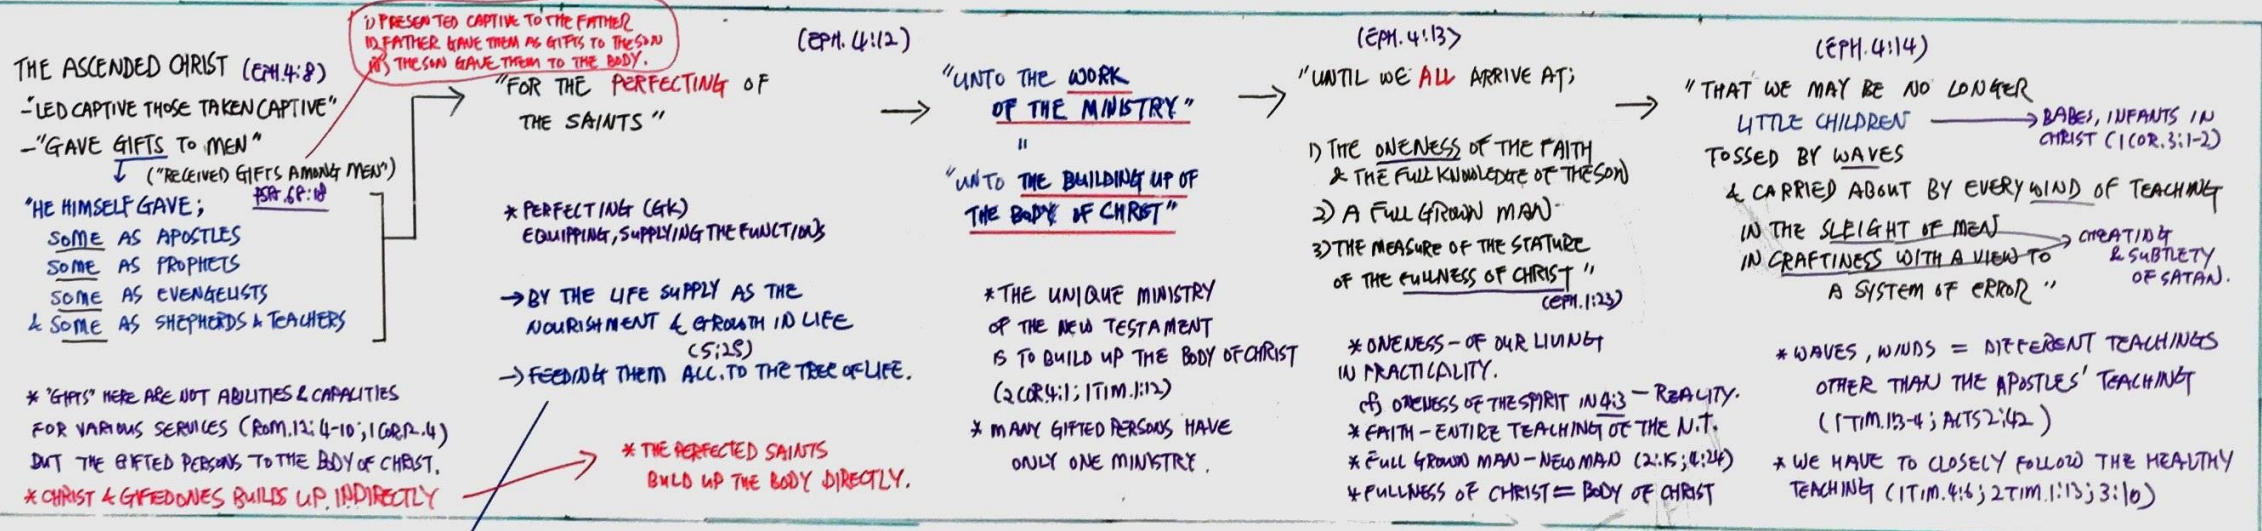 i) PRESENTED CAPTIVE TO THE FATHER
ii) FATHER GAVE THEM AS GIFTS TO THE SON
iii) THE SON GAVE THEM TO THE BODY.
THE ASCENDED CHRIST (EPH.4:8)
- "LED CAPTIVE THOSE TAKEN CAPTIVE"
- "GAVE GIFTS TO MEN"
("RECEIVED GIFTS AMONG MEN")
PSA.68:18
"HE HIMSELF GAVE;
SOME AS APOSTLES
SOME AS PROPHETS
SOME AS EVENGELISTS
& SOME AS SHEPHERDS & TEACHERS
* "GIFTS" HERE ARE NOT ABILITIES & CAPALITIES
FOR VARIOUS SERVICES (ROM.12:4-10; 1COR12.4)
BUT THE GIFTED PERSONS TO THE BODY OF CHRIST.
* CHRIST & GIFTED ONES BUILDS UP INDIRECTLY
(EPH. 4:12)
"FOR THE PERFECTING OF
THE SAINTS"
* PERFECTING (GK)
EQUIPPING, SUPPLYING THE FUNCTIONS
→ BY THE LIFE SUPPLY AS THE
NOURISHMENT & GROWTH IN LIFE
(5:29)
→ FEEDING THEM ACC. TO THE TREE OF LIFE.
* THE PERFECTED SAINTS
BUILD UP THE BODY DIRECTLY.
"UNTO THE WORK
OF THE MINISTRY"
"
"UNTO THE BUILDING UP OF
THE BODY OF CHRIST"
* THE UNIQUE MINISTRY
OF THE NEW TESTAMENT
IS TO BUILD UP THE BODY OF CHRIST
(2COR.4:1; 1TIM.1:12)
* MANY GIFTED PERSONS HAVE
ONLY ONE MINISTRY.
(EPH. 4:13)
"UNTIL WE ALL ARRIVE AT;
1) THE ONENESS OF THE FAITH
& THE FULL KNOWLEDGE OF THE SON)
2) A FULL GROWN MAN
3) THE MEASURE OF THE STATURE
OF THE FULLNESS OF CHRIST"
(EPH.1:23)
* ONENESS - OF OUR LIVING
IN PRACTICALITY.
cf) ONENESS OF THE SPIRIT IN 4:3 - REALITY.
* FAITH - ENTIRE TEACHING OF THE N.T.
* FULL GROWN MAN - NEW MAN (2:15; 4:24)
* FULLNESS OF CHRIST = BODY OF CHRIST
(EPH. 4:14)
"THAT WE MAY BE NO LONGER
LITTLE CHILDREN
BABES, INFANTS IN
CHRIST (1COR.3:1-2)
TOSSED BY WAVES
& CARRIED ABOUT BY EVERY WIND OF TEACHING
IN THE SLEIGHT OF MEN
IN CRAFTINESS WITH A VIEW TO
A SYSTEM OF ERROR"
CHEATING
& SUBTLETY
OF SATAN.
* WAVES, WINDS = DIFFERENT TEACHINGS
OTHER THAN THE APOSTLES' TEACHING
(1TIM.1:3-4; ACTS 2:42)
* WE HAVE TO CLOSELY FOLLOW THE HEALTHY
TEACHING (1TIM.4:6; 2TIM.1:13; 3:10)